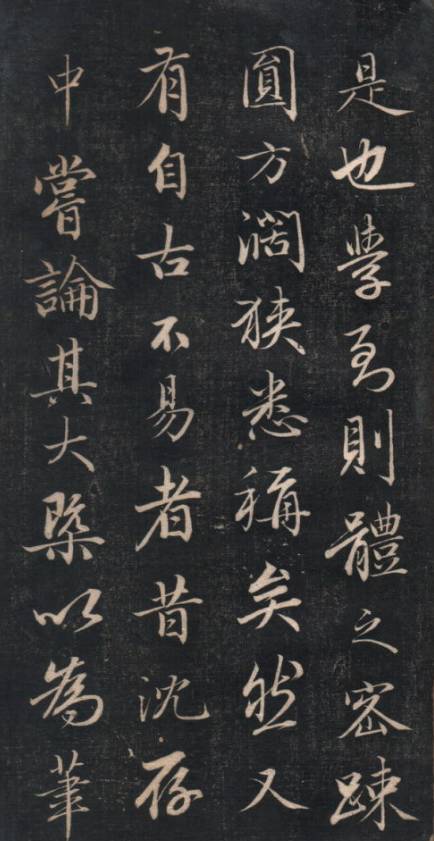 是也學至則體之密踈
圓方濶狹悉稱矣然又
有自古不易者昔沈存
中嘗論其大槩以為筆